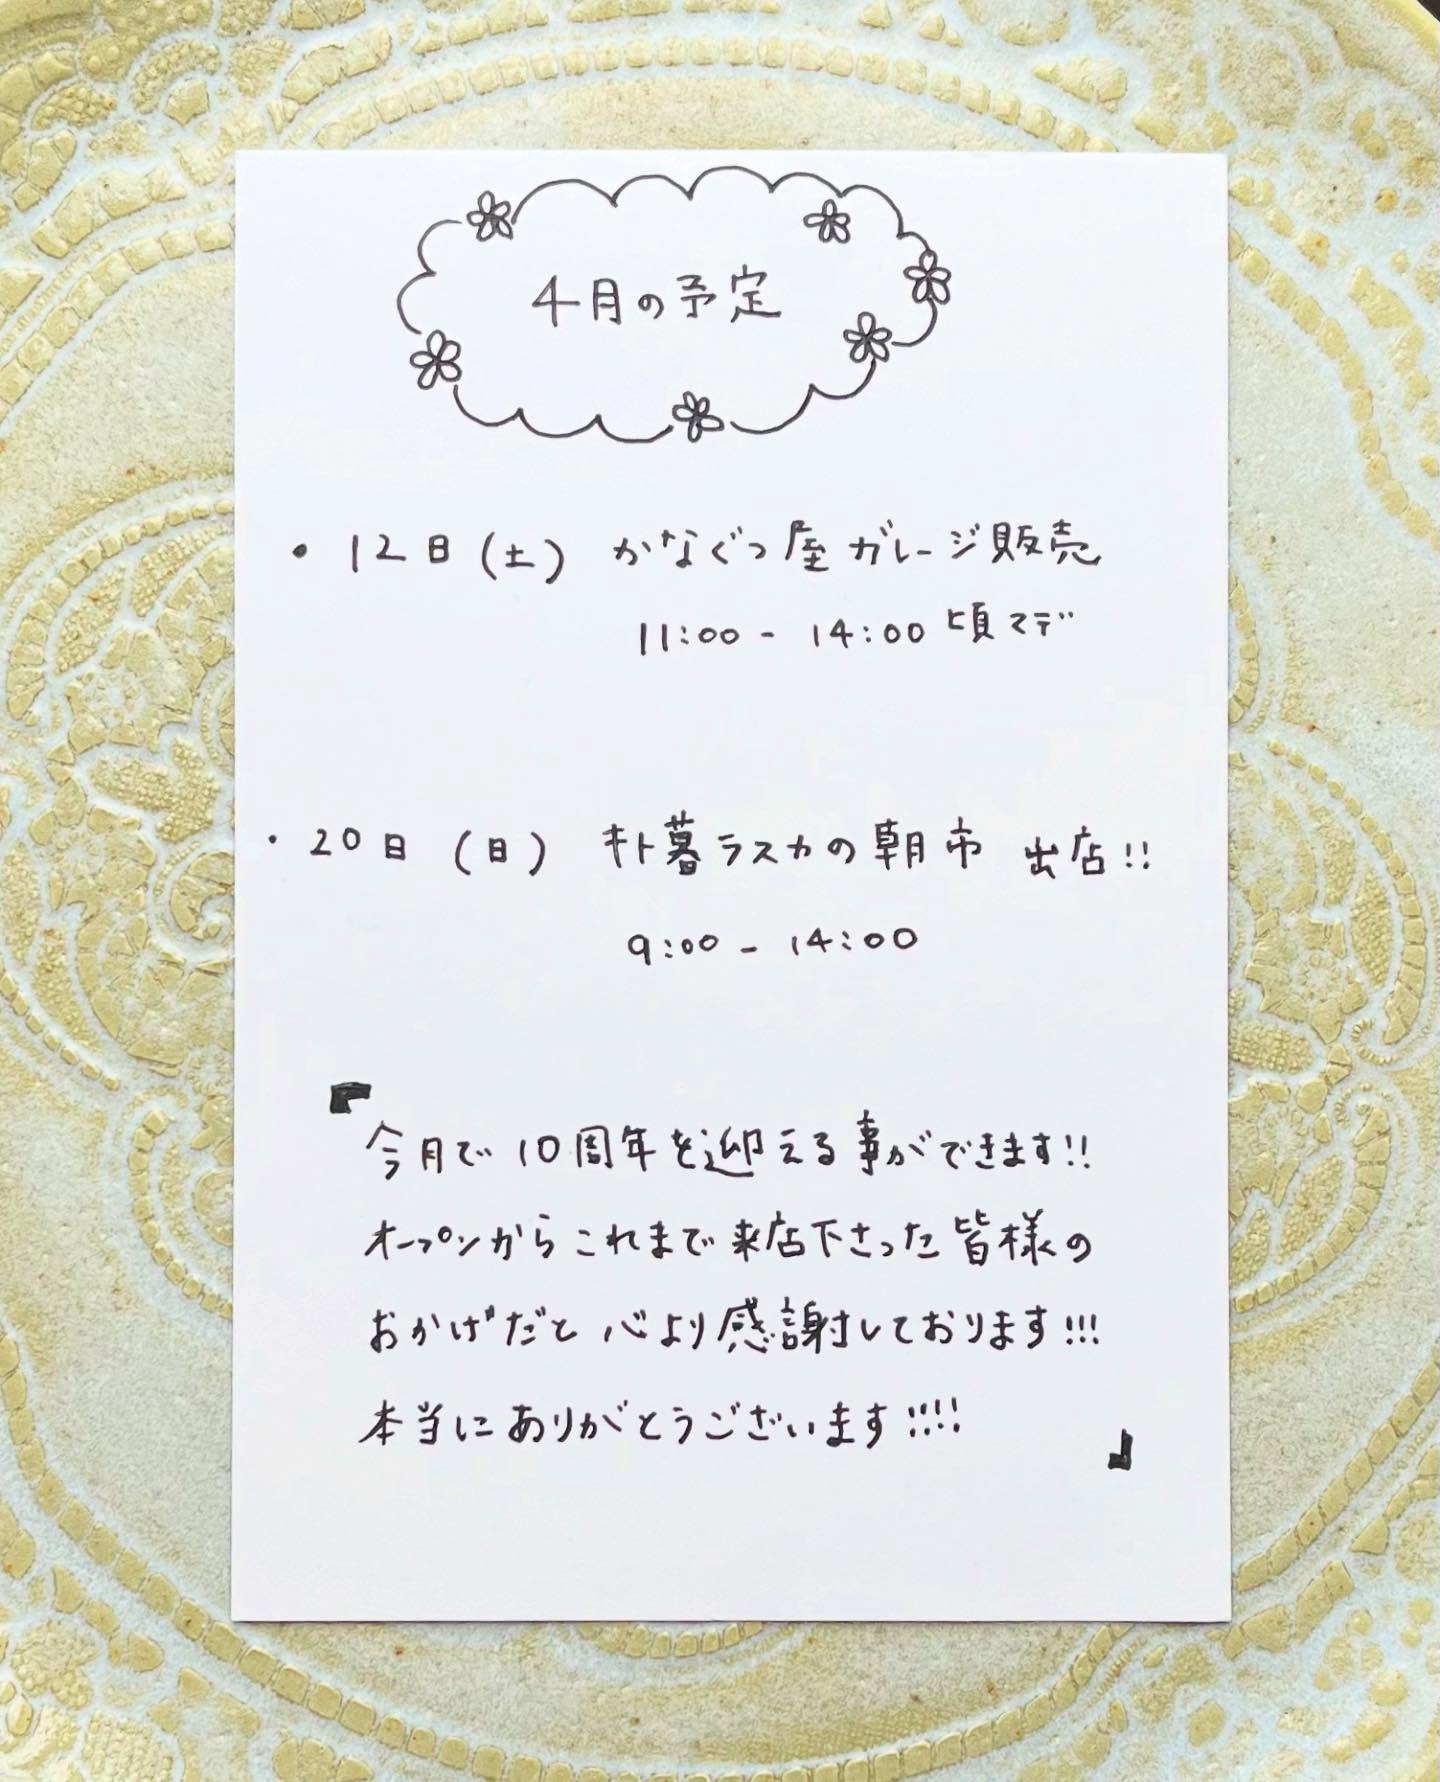 4月の予定
・12日(土) かなぐつ屋ガレージ販売
11:00 - 14:00 頃マデ
・20日(日) キト暮ラスカの朝市 出店!!
9:00 - 14:00
『
今月で10周年を迎える事ができます!!
オープンからこれまで来店下さった皆様の
おかげだと心より感謝しております!!!
本当にありがとうございます!!!!
』